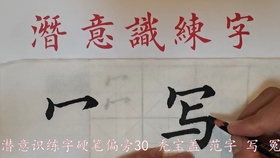 潛意識練字
冖 写
潜意识练字硬笔偏旁30 秃宝盖 范字 写 冤